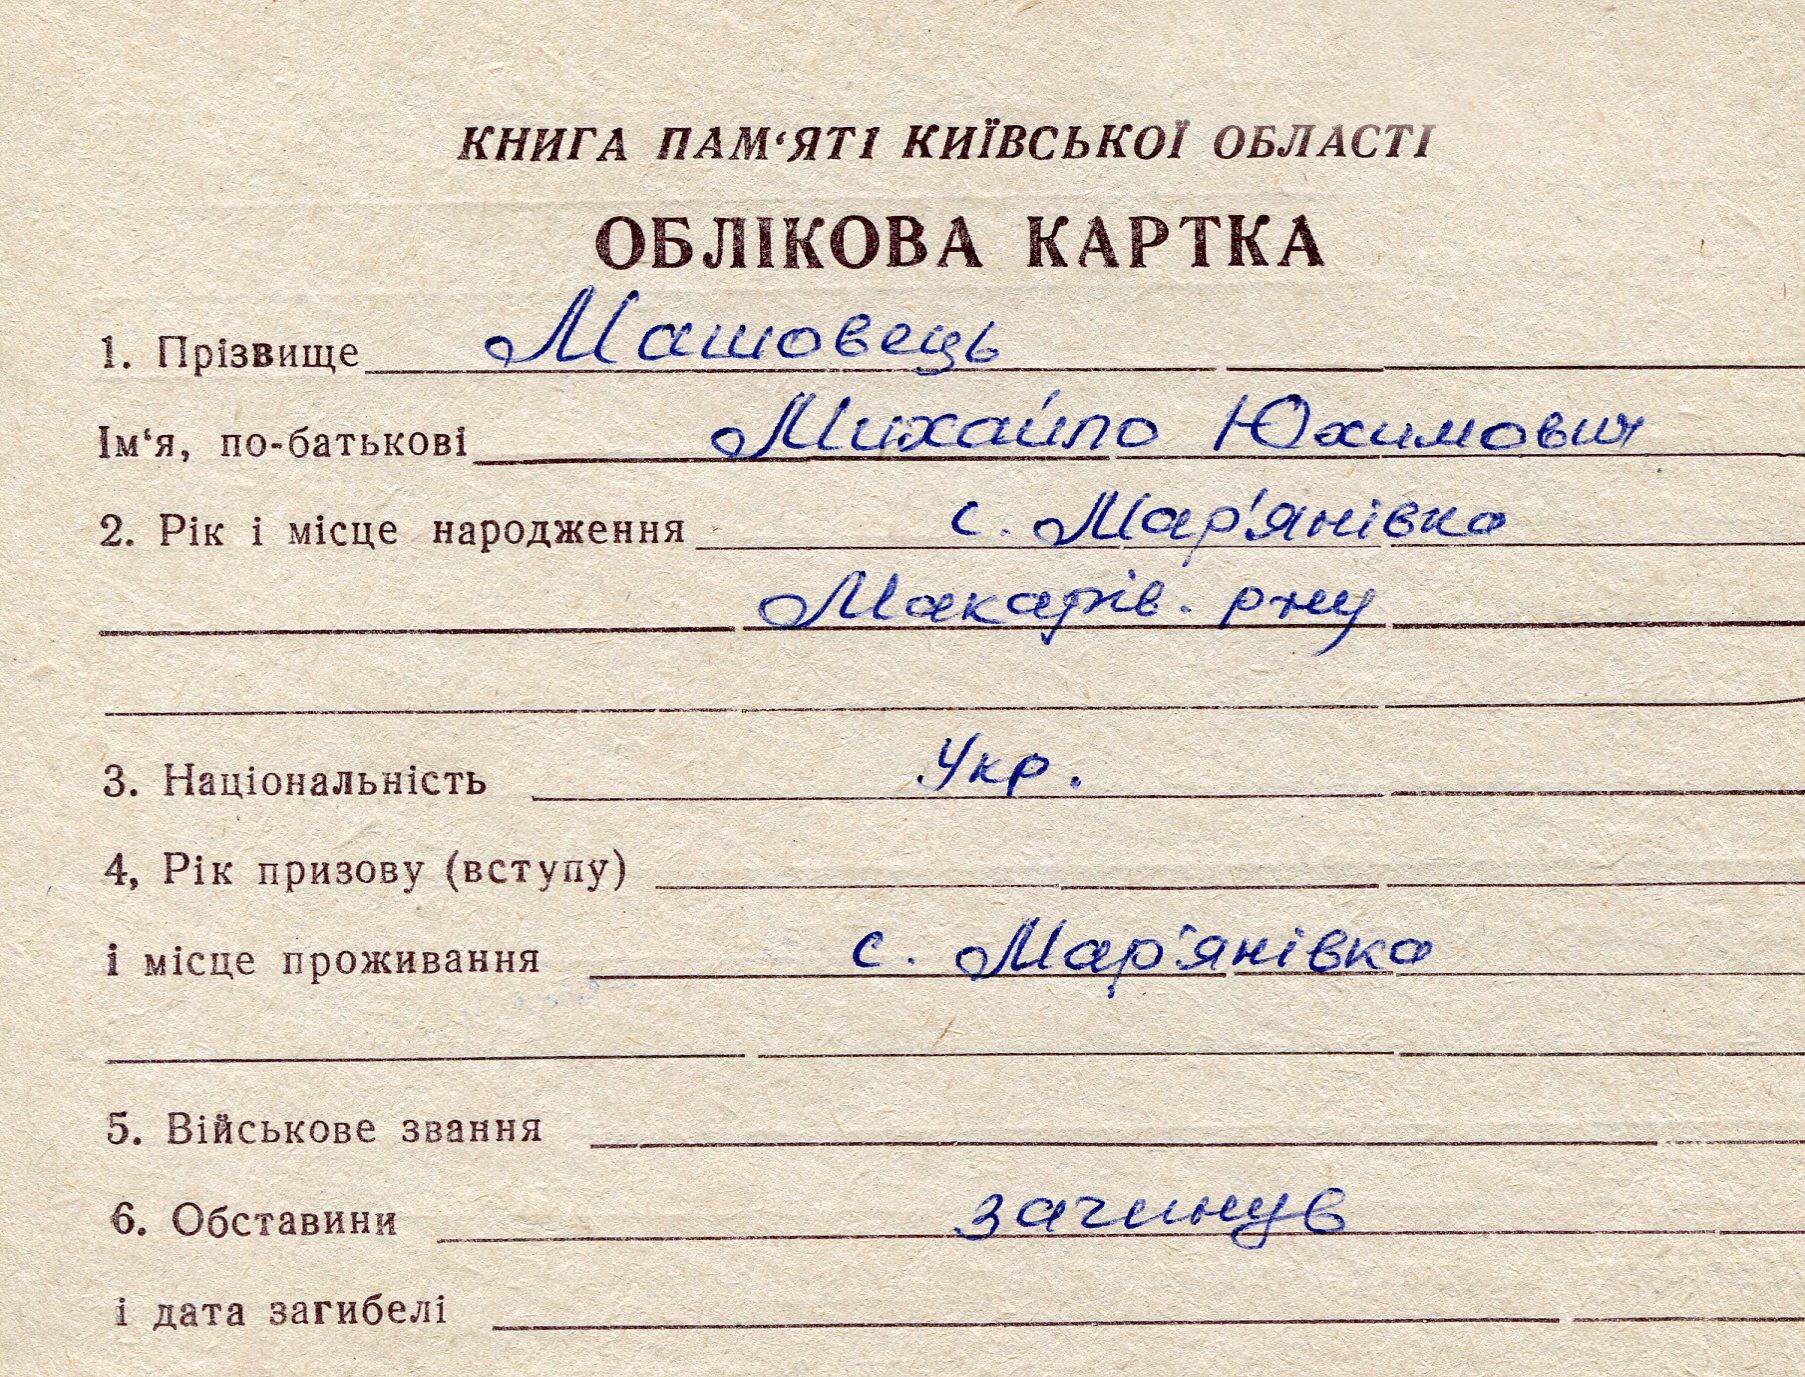 КНИГА ПАМ‘ЯТІ КИЇВСЬКОЇ ОБЛАСТІ
ОБЛІКОВА КАРТКА
1. Прізвище Машовець
Ім‘я, по-батькові Михайло Юхимович
2. Рік і місце народження с. Мар'янівка
Макарів. р-ну
3. Національність Укр.
4, Рік призову (вступу)
і місце проживання с. Мар'янівка
5. Військове звання
6. Обставини загинув
і дата загибелі